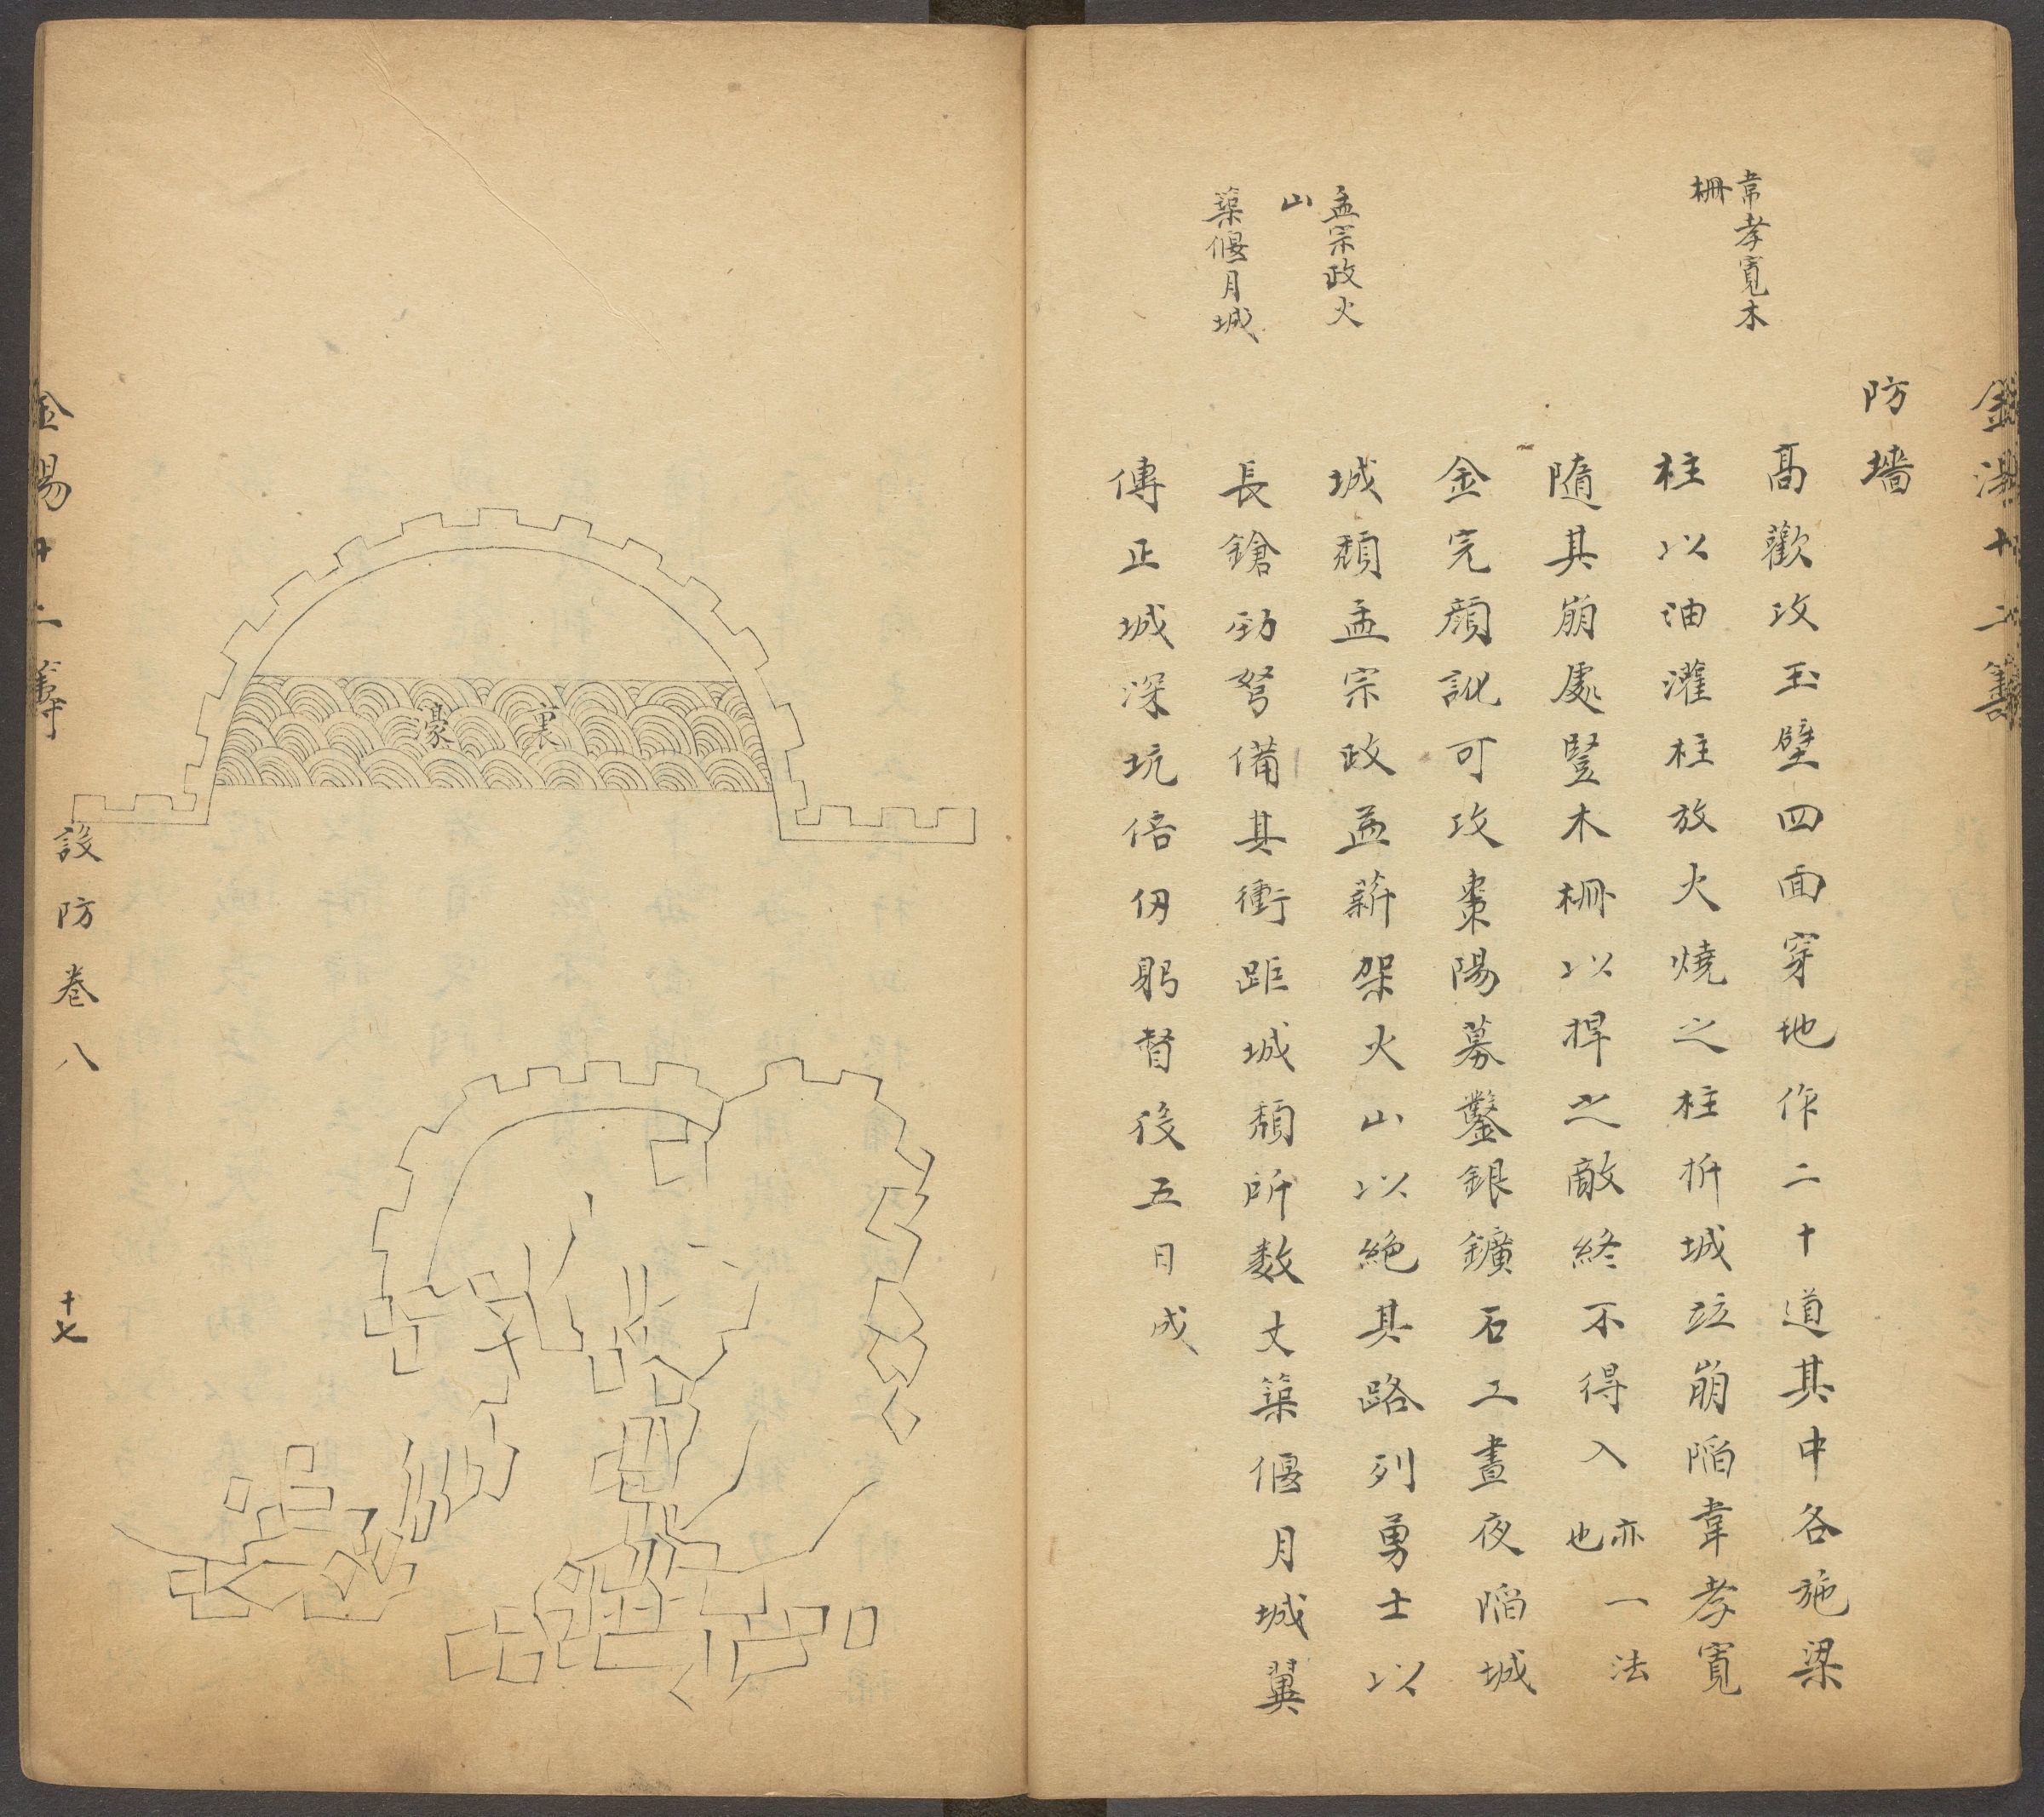 金湯十二籌
防墻
韋孝寬木
柵
高歡攻玉壁四面穿地作二十道其中各施梁
柱以油灌柱放火燒之柱折城竝崩陷韋孝寬
隨其崩處豎木柵以捍之敵終不得入亦一法
也
金完顏訛可攻棗陽募鑿銀鑛石工晝夜陷城
孟宗政火
山
城頹孟宗政益薪架火山以絕其路列勇士以
築偃月城
長鎗勁弩備其衝距城頹所数丈築偃月城翼
傳正城深坑倍仞躬督役五日成
裏濠
金湯十二籌
設防卷八
十七